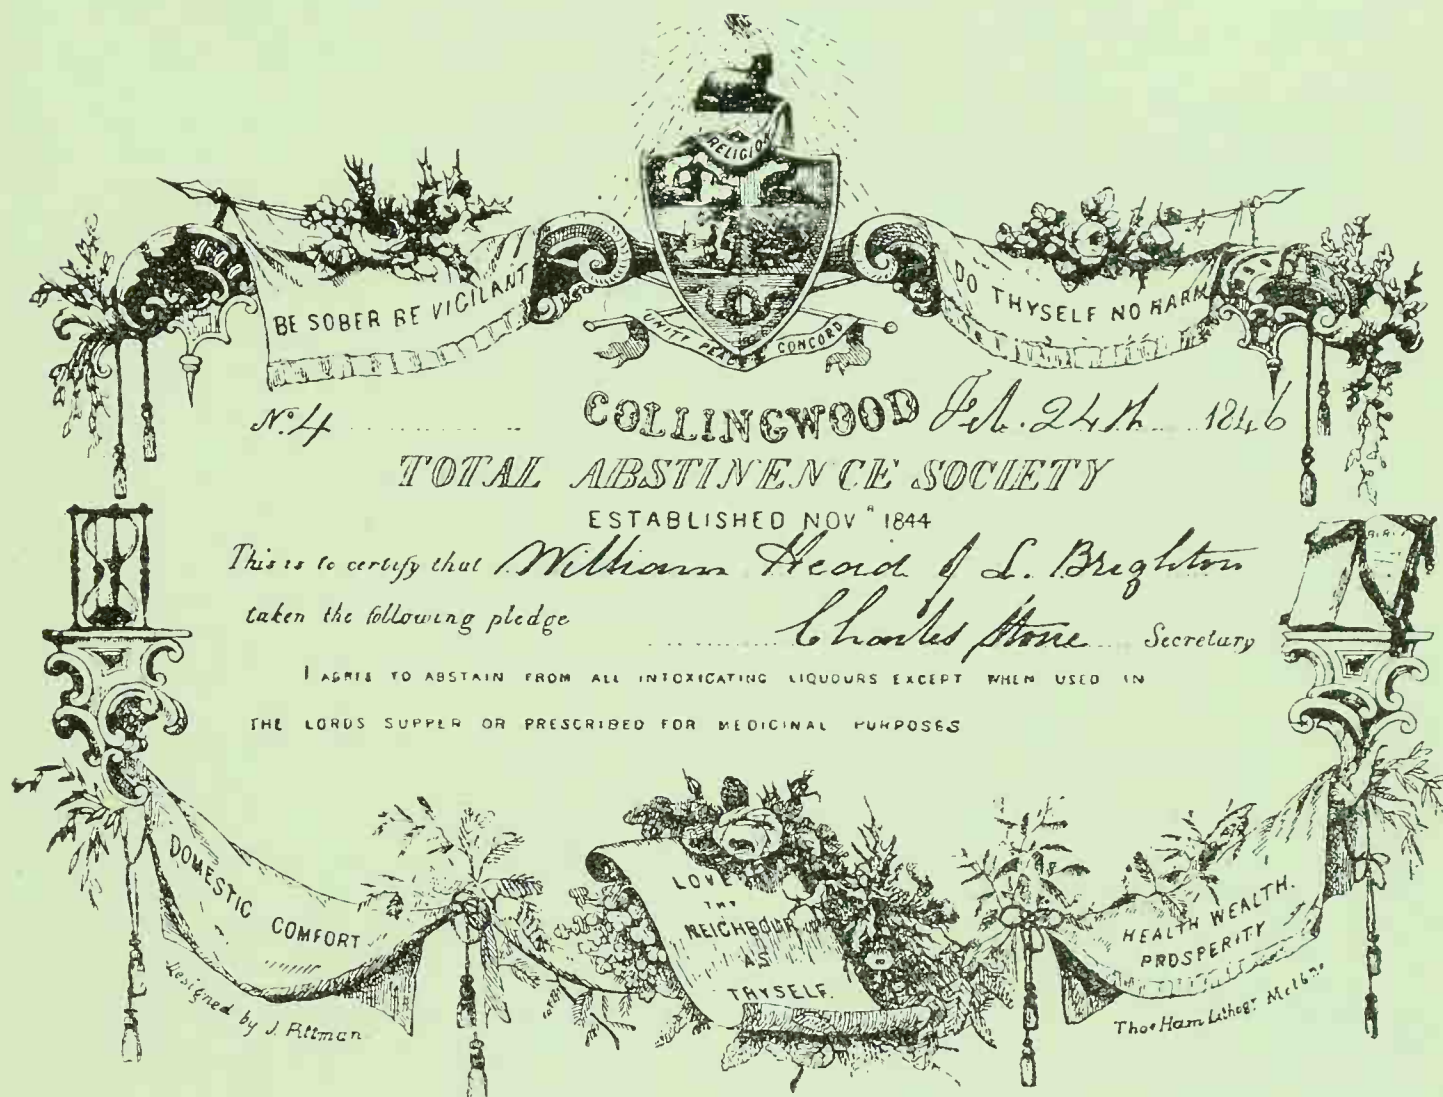 RELIGION
BE SOBER BE VIGILANT
DO THYSELF NO HARM
UNITY PEACE CONCORD
No. 4 COLLINGWOOD Feb. 24th 1846
TOTAL ABSTINENCE SOCIETY
ESTABLISHED NOVR 1844
This is to certify that William Head of L. Brighton
taken the following pledge
Charles Stone Secretary
I AGREE TO ABSTAIN FROM ALL INTOXICATING LIQUOURS EXCEPT WHEN USED IN
THE LORDS SUPPER OR PRESCRIBED FOR MEDICINAL PURPOSES
DOMESTIC COMFORT
LOVE
THY
NEICHBOUR
AS
THYSELF.
HEALTH WEALTH.
PROSPERITY
Designed by J. Pittman
Thos Ham Lithogr. Melbne